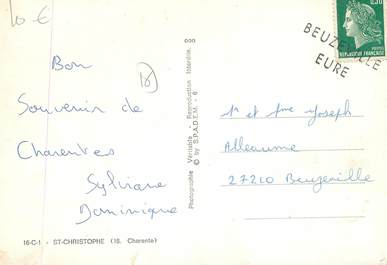 10 €
000
0,30
REPUBLIQUE FRANCAISE
BEUZEVILLE
EURE
Bon
Souvenir de
Charentes
Sylviane
Dominique
18
Photographie Véritable - Reproduction Interdite.
© by S.P.A.D.E.M. - 6
Mr et Mme Joseph
Alleaume
27210 Beuzeville
16-C-1 - ST-CHRISTOPHE (16. Charente)